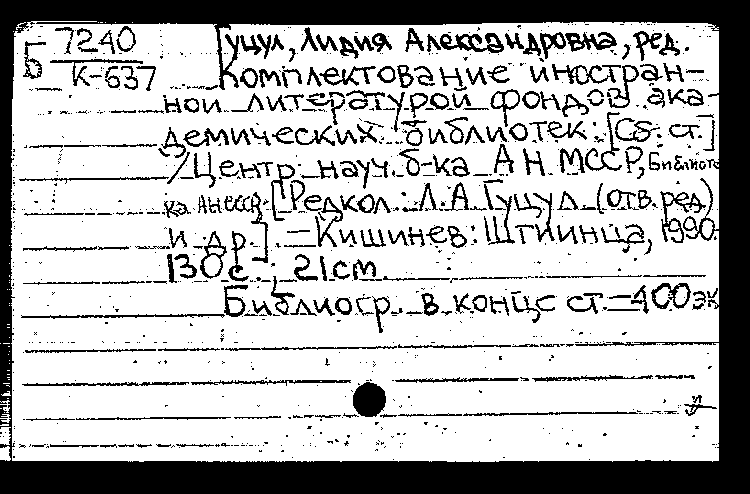 Б 7240 [Гуцул, Лидия Александровна, ред.
К-637 Комплектование иностран-
ной литературой фондов ака-
демических библиотек: [Сб. ст.]
/Центр. науч. б-ка АН МССР, Библиоте
ка АН СССР. [Редкол.: Л.А. Гуцул (отв. ред)
и др.]. – Кишинев: Штиинца, 1990.
130 с.; 21 cm.
Библиогр. в конце ст. – 400 эк